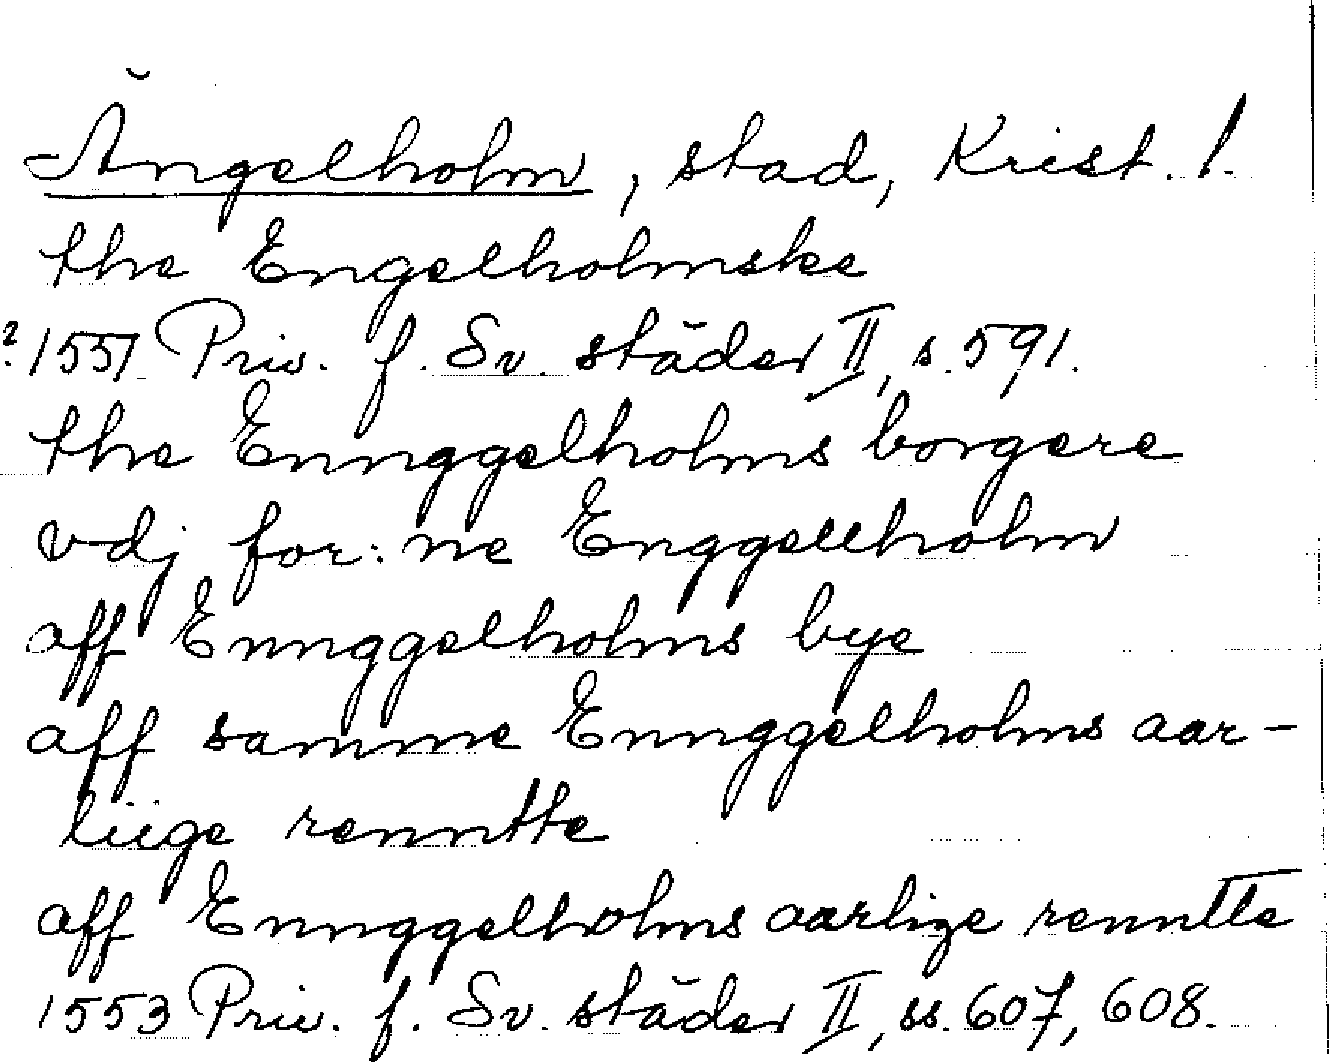 Ängelholm, stad, Krist. l.
the Engelholmske
? 1551 Priv. f. Sv. städer II, s. 591.
the Ennggelholms borgere
vdj for:ne Enggellholm
aff Ennggelholms bye
aff samme Ennggelholms aar-
liige renntte
aff Ennggelholms aarlige renntte
1553 Priv. f. Sv. städer II, ss. 607, 608.